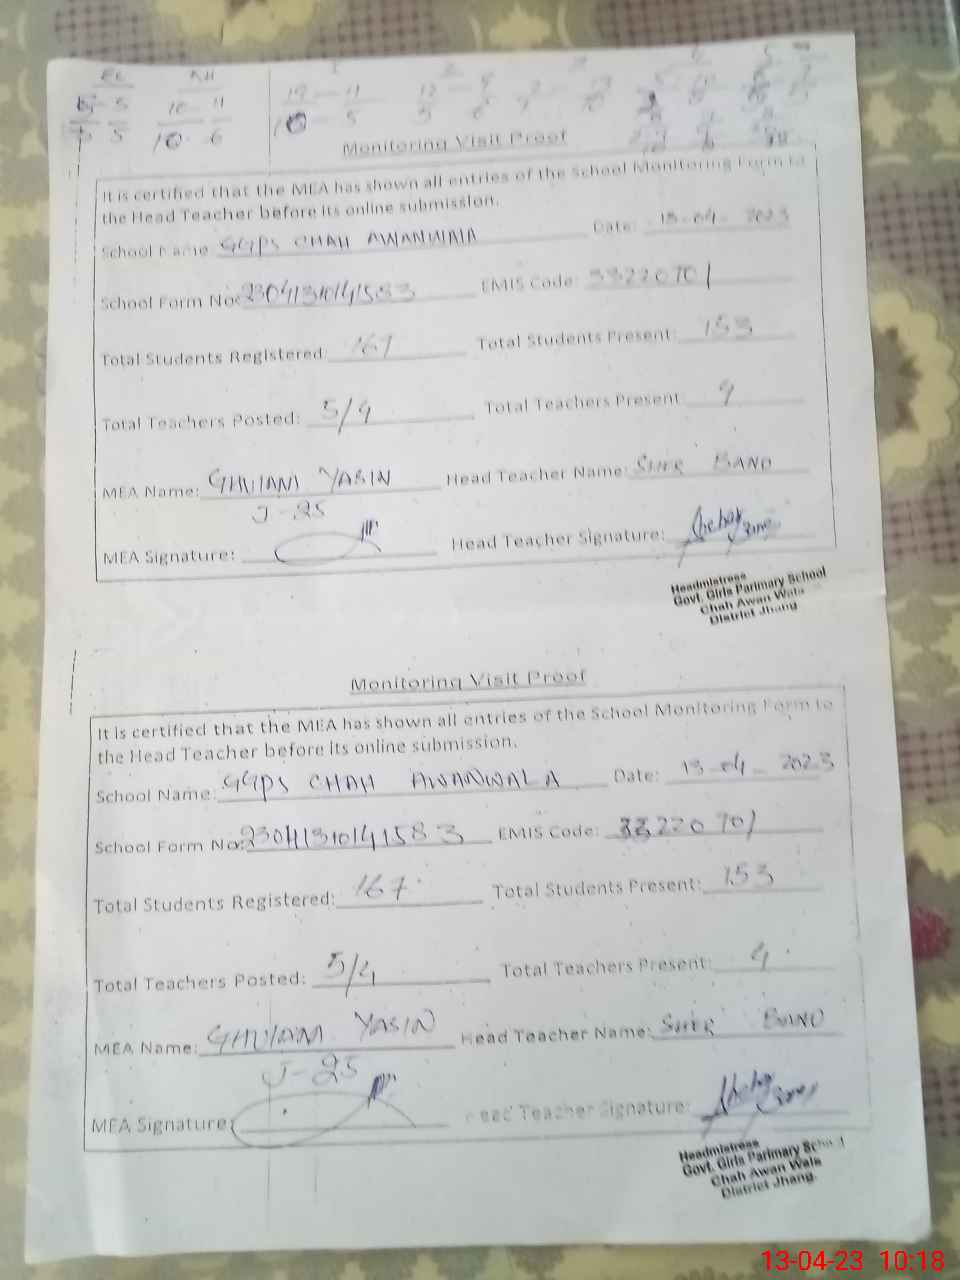 Monitoring Visit Proof
It is certified that the MEA has shown all entries of the School Monitoring Form to
the Head Teacher before its online submission.
School Name GGPS CHAH AWANWALA Date: 13-04-2023
School Form No: 23041310141583 EMIS Code: 33220701
Total Students Registered 167 Total Students Present: 153
Total Teachers Posted: 5/4 Total Teachers Present 4
MEA Name: GHULAM YASIN Head Teacher Name: SHER BANO
J-25
MEA Signature: Head Teacher Signature:
Headmistress
Govt. Girls Parimary School
Chah Awan Wala
District Jhang
Monitoring Visit Proof
It is certified that the MEA has shown all entries of the School Monitoring Form to
the Head Teacher before its online submission.
School Name: GGPS CHAH AWANWALA Date: 13-04-2023
School Form No: 23041310141583 EMIS Code: 33220701
Total Students Registered: 167 Total Students Present: 153
Total Teachers Posted: 5/4 Total Teachers Present: 4
MEA Name: GHULAM YASIN Head Teacher Name: SHER BANO
J-25
MEA Signature: Head Teacher Signature:
Headmistress
Govt. Girls Parimary School
Chah Awan Wala
District Jhang
13-04-23 10:18